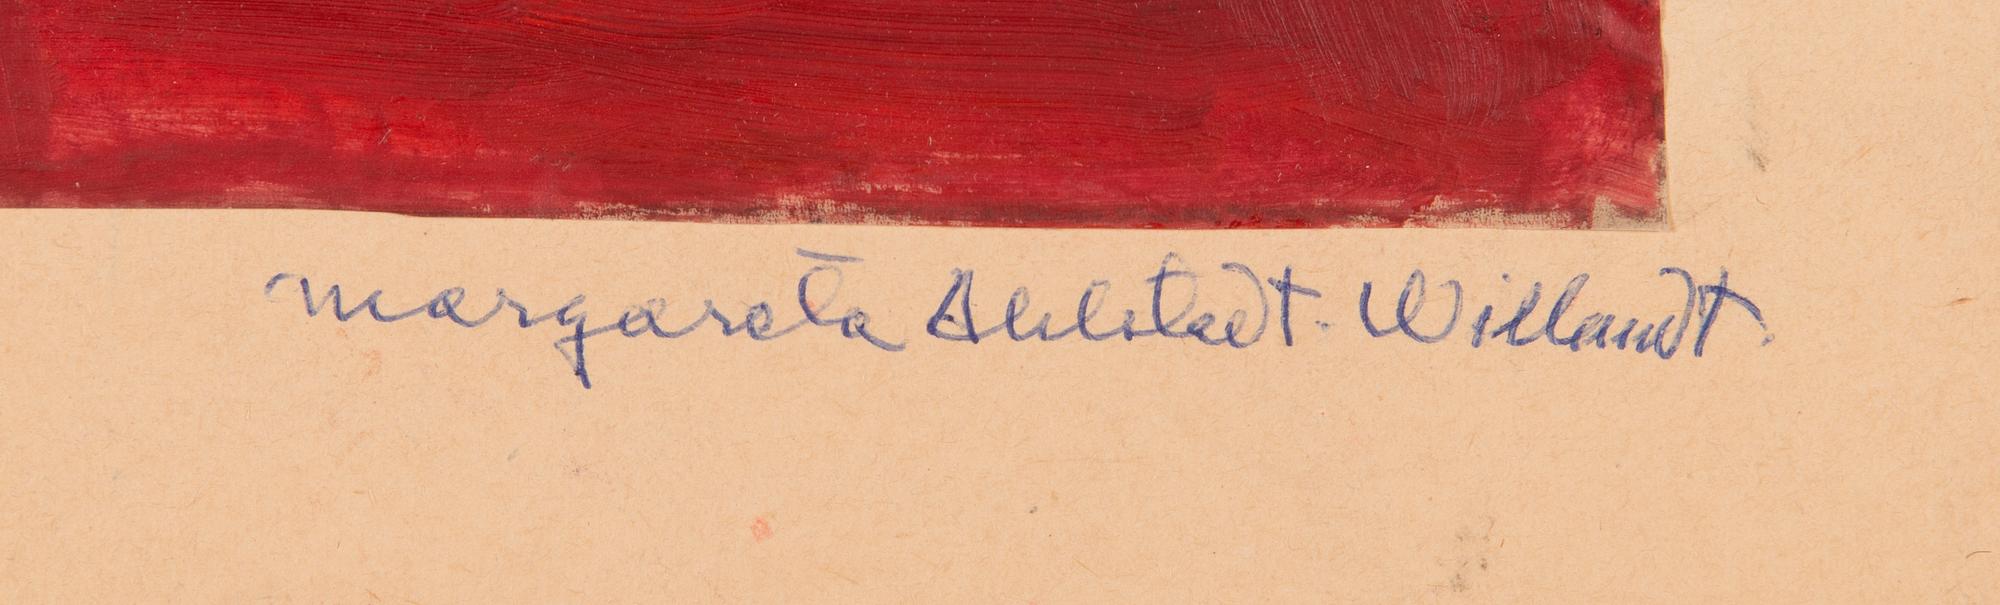 Margareta Ahlstedt-Willandt.